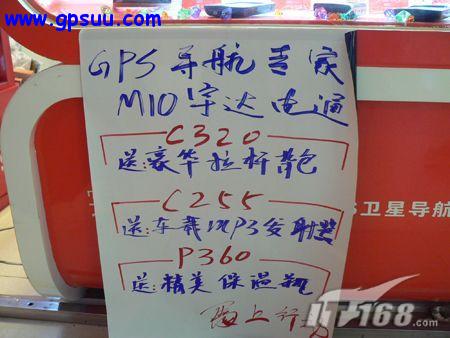 www.gpsuu.com
GPS 导航专家
MIO 宇达电通
C320
送:豪华拉杆背包
C255
送:车载MP3发射器
P360
送:精美保温瓶
卫星导航
IT168.com